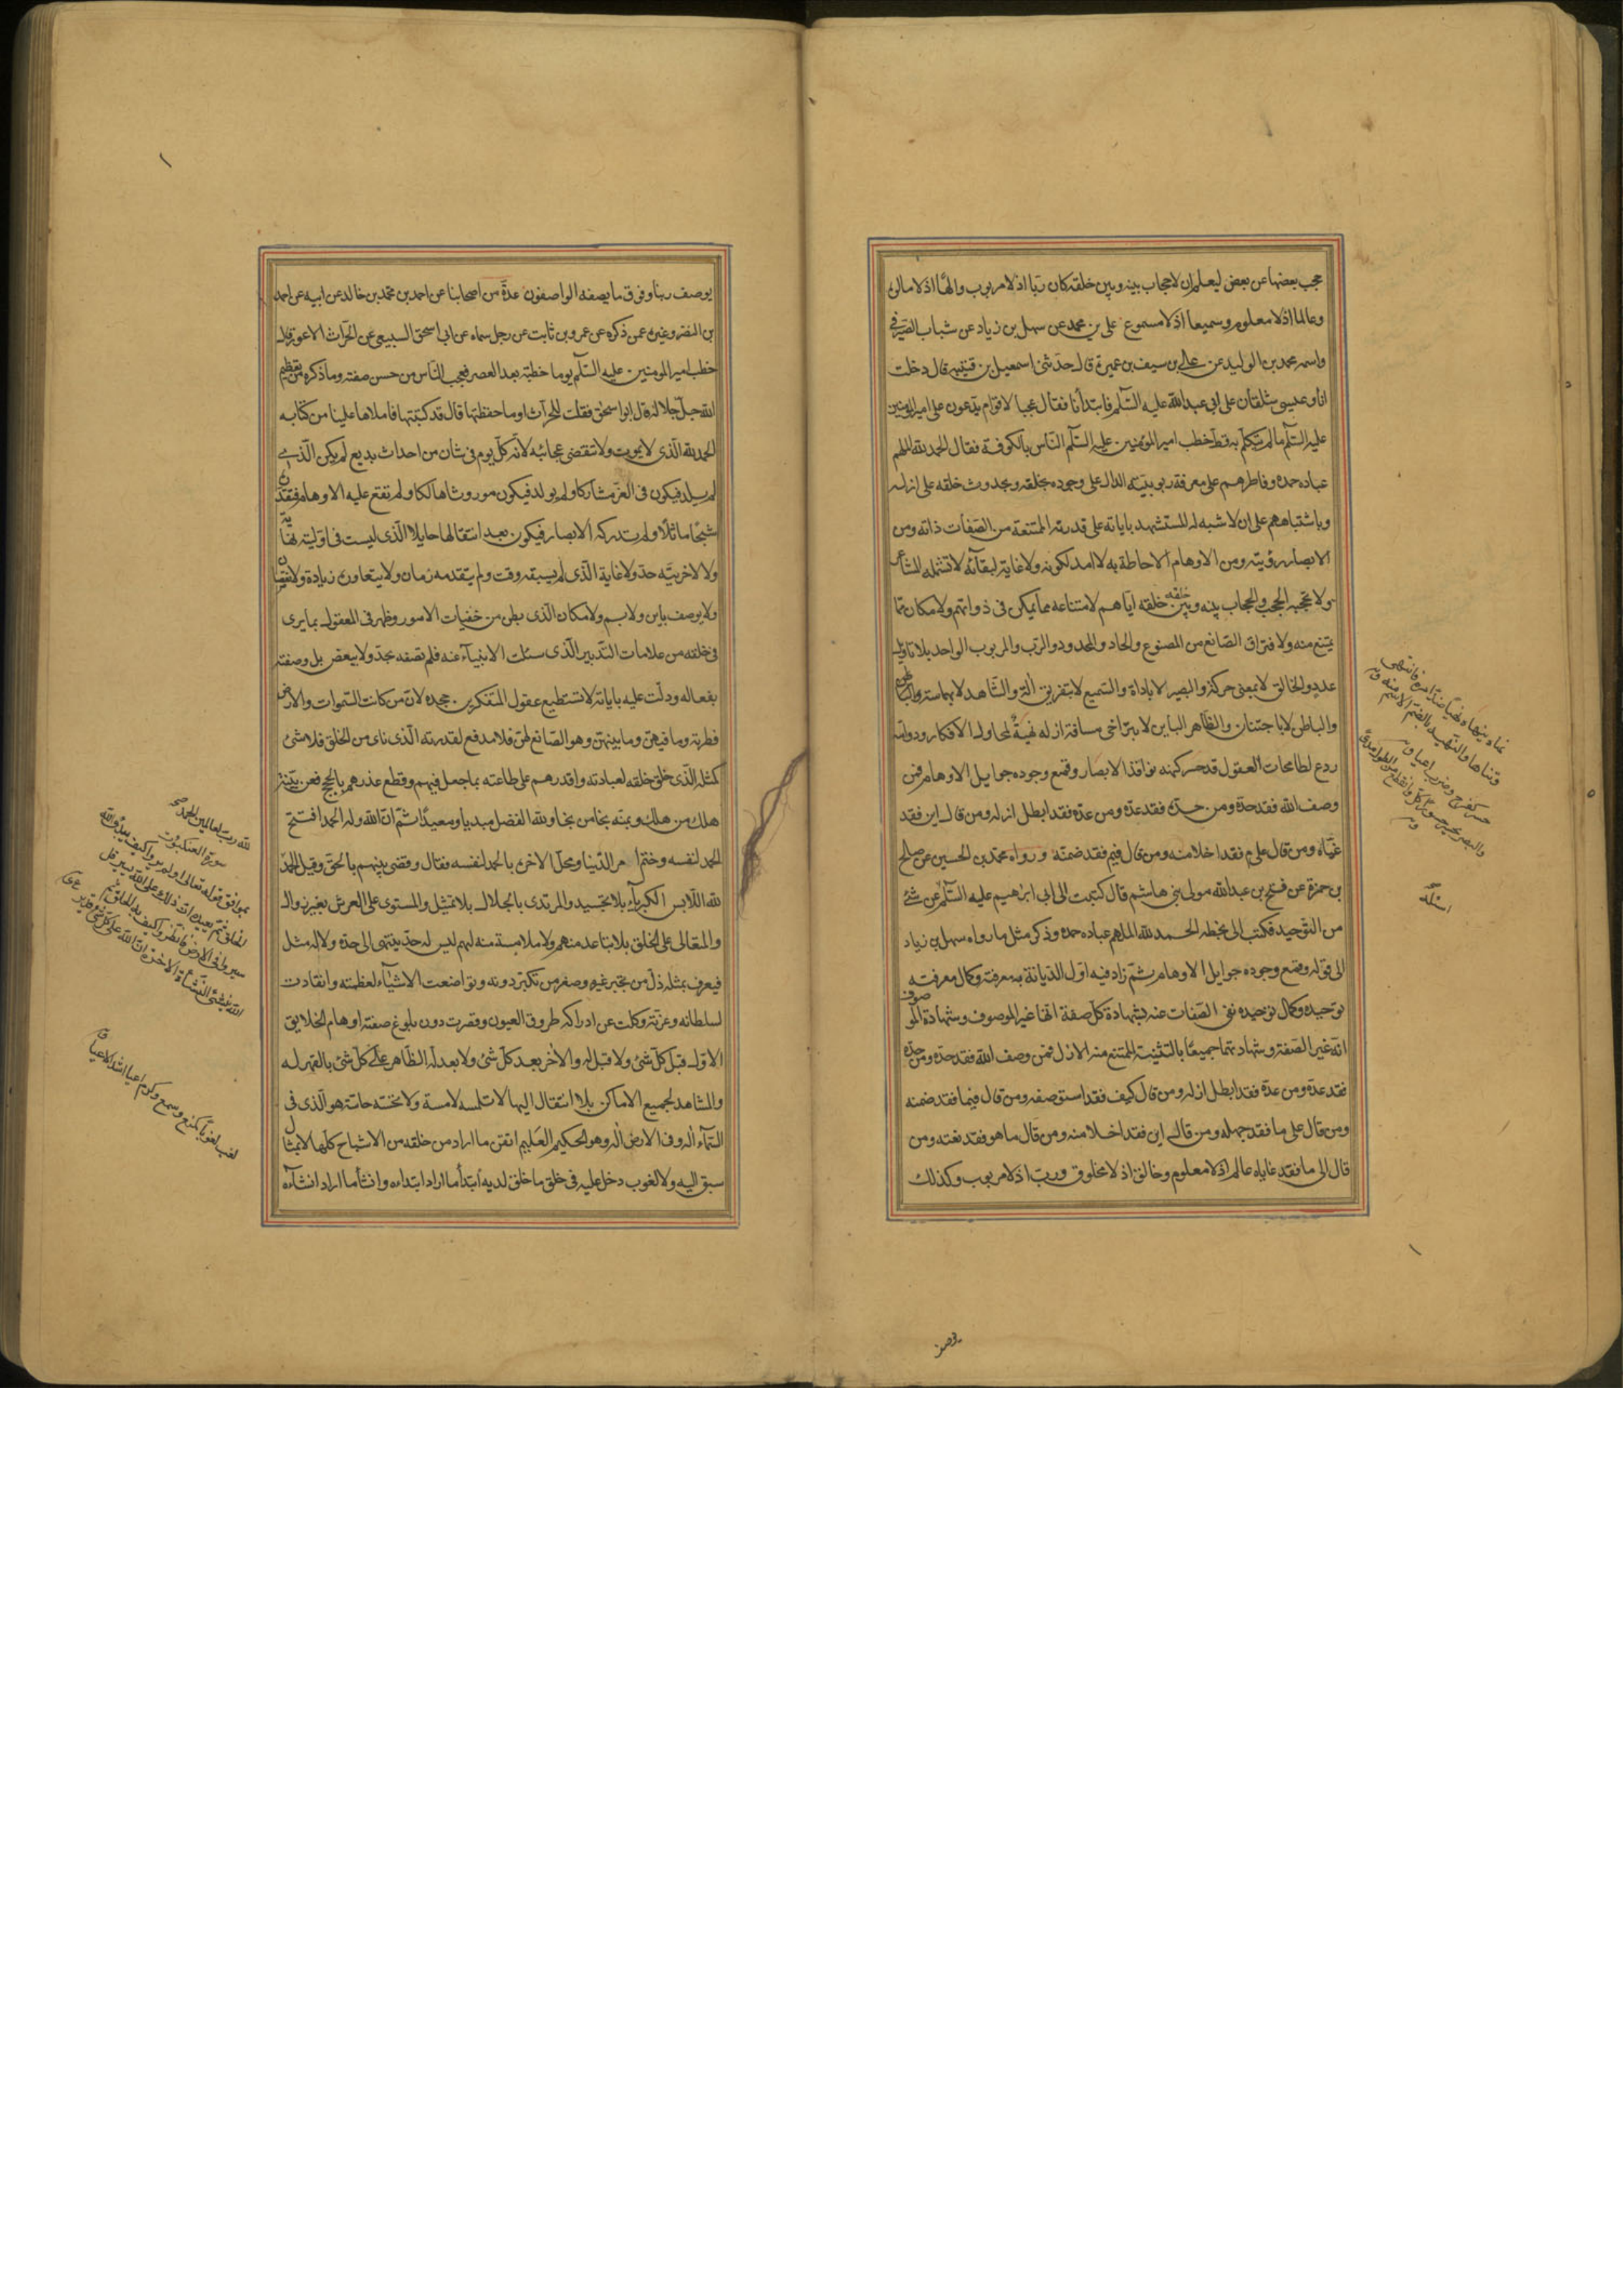 حجب بعضها عن بعض ليعلم ان لا حجاب بينه وبين خلقه كان ربّا اذ لا مربوب والهًا اذ لا مالوه
وعالما اذ لا معلوم وسميعا اذ لا مسموع علي بن محمد عن سهل بن زياد عن شباب الصيرفي
واسمه محمد بن الوليد عن علي بن سيف بن عميرة قال حدّثني اسمعيل بن قتيبة قال دخلت
انا وعيسى شلقان على ابي عبد الله عليه السّلم فابتدأنا فقال عجبا لاقوام يدّعون على امير المؤمنين
عليه السّلم ما لم يتكلّم به قطّ خطب امير المؤمنين عليه السّلم النّاس بالكوفة فقال الحمد لله الملهم
عباده حمده وفاطرهم على معرفة ربوبيّته الدال على وجوده بخلقه وبحدوث خلقه على ازله
وباشتباههم على ان لا شبه له المستشهد باياته على قدرته الممتنعة من الصّفات ذاته ومن
الابصار رؤيته ومن الاوهام الاحاطة به لا امد لكونه ولا غاية لبقآئه لا تشمله المشاعر
ولا تحجبه الحجب والحجاب بينه وبين خلقه خلقه ايّاهم لامتناعه مما يمكن في ذواتهم ولامكان ممّا
يمتنع منه ولافتراق الصّانع من المصنوع والحاد والمحدود والرّب والمربوب الواحد بلا تاويل
عدد والخالق لا بمعنى حركة والبصير لا باداة والسّميع لا بتفريق الة والشّاهد لا بمماسة والباطن
والباطن لا باجتنان والظّاهر الباين لا بتراخى مسافة ازله نهيةٌ لمحاول الافكار ودوامه
ردع لطامحات العقول قد حسر كنهه نوافذ الابصار وقمع وجوده جوايل الاوهام فمن
وصف الله فقد حدّه ومن حدّه فقد عدّه ومن عدّه فقد ابطل ازله ومن قال اين فقد
غيّاه ومن قال علىم فقد اخلا منه ومن قال فيم فقد ضمنّه ورواه محمّد بن الحسين عن صالح
بن حمزة عن فتح بن عبد الله مولى بنى هاشم قال كتبت الى ابى ابرهيم عليه السّلم عن شئ
من التّوحيد فكتب الى بخطه الحمد لله الملهم عباده حمده وذكر مثل ما رواه سهل بن زياد
الى قوله وقمع وجوده جوايل الاوهام ثمّ زاد فيه اوّل الدّيانة به معرفته وكمال معرفته
توحيده وكمال توحيده نفى الصّفات عنه بشهادة كلّ صفة انّها غير الموصوف وشهادة الموصوف
انّه غير الصّفة وشهادتهما جميعًا بالتّثنية الممتنع منه الازل فمن وصف الله فقد حدّه ومن حدّه
فقد عدّه ومن عدّه فقد ابطل ازله ومن قال كيف فقد استوصفه ومن قال فيما فقد ضمنه
ومن قال على ما فقد جهله ومن قال اين فقد اخلا منه ومن قال ما هو فقد نعته ومن
قال الى ما فقد غاياه عالم اذ لا معلوم وخالق اذ لا مخلوق وربّ اذ لا مربوب وكذلك
يوصف
يوصف ربنا وفوق ما يصفه الواصفون عدّة من اصحابنا عن احمد بن محمّد بن خالد عن ابيه عن احمد
بن النضر وغيره عمن ذكره عن عمرو بن ثابت عن رجل سماه عن ابى اسحق السبيعى عن الحرّاث الاعور قال
خطب امير المومنين عليه السّلم يوما خطبة بعد العصر فعجب النّاس من حسن صفته وما ذكره من تعظيم
الله جلّ جلاله قال ابو اسحق فقلت للحرّاث او ما حفظتها قال قد كتبتها فاملاها علينا من كتابه
الحمد لله الّذى لا يموت ولا تنقضى عجائبه لانّه كلّ يوم فى شأن من احداث بديع لم يكن الّذى
لم يلد فيكون فى العزّ مشاركا ولم يولد فيكون موروثا هالكا ولم تقع عليه الاوهام فتقدّره
شبحًا ماثلًا ولم تدركه الابصار فيكون بعد انتقالها حايلا الّذى ليست فى اوّليته نهاية
ولا لاخريّته حدّ ولا غاية الّذى لم يسبقه وقت ولم يتقدمه زمان ولا يتعاوره زيادة ولا نقصان
ولا يوصف باين ولا بم ولا مكان الّذى بطن من خفيات الامور وظهر فى العقول بما يرى
فى خلقه من علامات التّدبير الّذى سئلت الانبيآء عنه فلم تصفه بحدّ ولا ببعض بل وصفته
بفعاله ودلّت عليه باياته لا تستطيع عقول المتفكرين جحده لانّ من كانت السّموات والارض
فطرته وما فيهنّ وما بينهنّ وهو الصّانع لهنّ فلا مدفع لقدرته الّذى ناى من الخلق فلا شئ
كمثله الّذى خلق خلقه لعبادته واقدرهم على طاعته بما جعل فيهم وقطع عذرهم بالحجج فعن بيّنة
هلك من هلك وبمنّه نجا من نجا ولله الفضل مبديا ومعيدًا ثمّ انّ الله وله الحمد افتتح
الحمد لنفسه وختم امر الدّنيا ومحلّ الاخرة بالحمد لنفسه فقال وقضى بينهم بالحقّ وقيل الحمد
لله اللّابس الكبرياء بلا تجسيد والمرتدى بالجلال بلا تمثيل والمستوى على العرش بغير زوال
والمتعالى على الخلق بلا تباعد منهم ولا ملامسة منه لهم ليس له حدّ ينتهى الى حدّه ولا له مثل
فيعرف بمثله ذلّ من تجبّر غيره وصغر من تكبّر دونه وتواضعت الاشيآء لعظمته وانقادت
لسلطانه وعزّته وكلت عن ادراكه طروف العيون وقصرت دون بلوغ صفته اوهام الخلايق
الاوّل قبل كلّ شئ ولا قبل له والاخر بعد كلّ شئ ولا بعد له الظّاهر على كلّ شئ بالقهر له
والمشاهد لجميع الاماكن بلا انتقال اليها لا تلمسه لامسة ولا تحسّه حاسّة هو الّذى فى
السّمآء اله وفى الارض اله وهو الحكيم العليم اتقن ما اراد من خلقه من الاشباح كلّها لا بمثال
سبق اليه ولا لغوب دخل عليه فى خلق ما خلق لديه ابتدأ ما اراد ابتداءه وانشأ ما اراد انشاءه
لله رب العالمين الحمد
سورة العنكبوت
بموافق قوله تعالى اولم يروا كيف يبدؤ الله
الخلق ثم يعيده ان ذلك على الله يسير قل
سيروا فى الارض فانظروا كيف بدا الخلق ثم
الله ينشئ النشاة الاخرة ان الله على كل شئ قدير